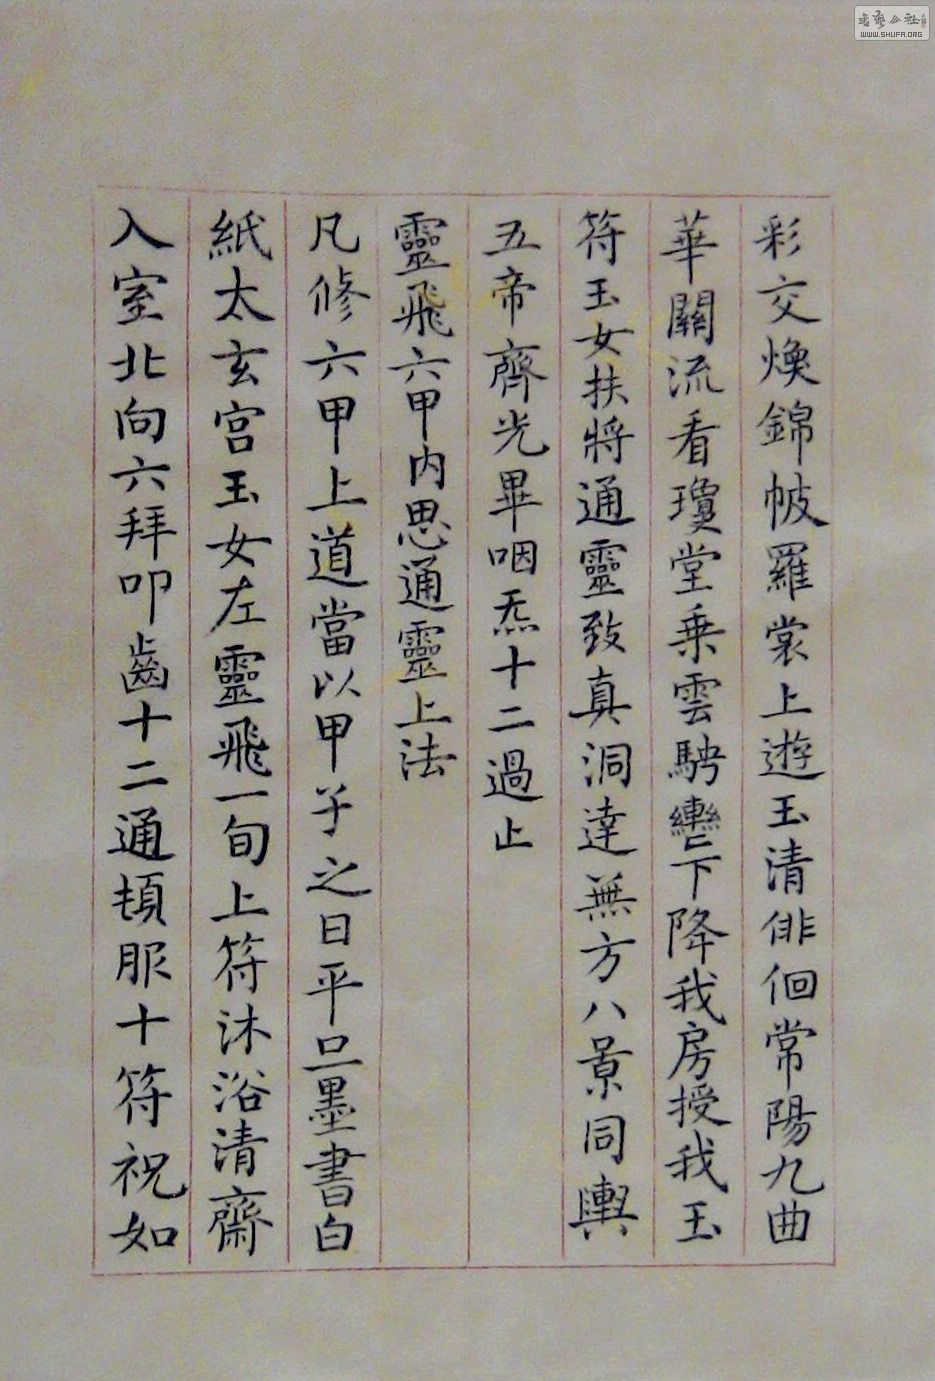 彩交煥錦帔羅裳上遊玉清俳佪常陽九曲
華關流看瓊堂乗雲騁轡下降我房授我玉
符玉女扶將通靈致真洞達無方八景同輿
五帝齊光畢咽炁十二過止
靈飛六甲內思通靈上法
凡修六甲上道當以甲子之日平旦墨書白
紙太玄宮玉女左靈飛一旬上符沐浴清齋
入室北向六拜叩齒十二通頓服十符祝如
WWW.SHUFA.ORG